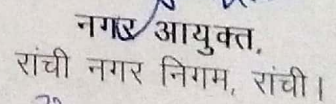 नगर आयुक्त,
रांची नगर निगम, रांची।